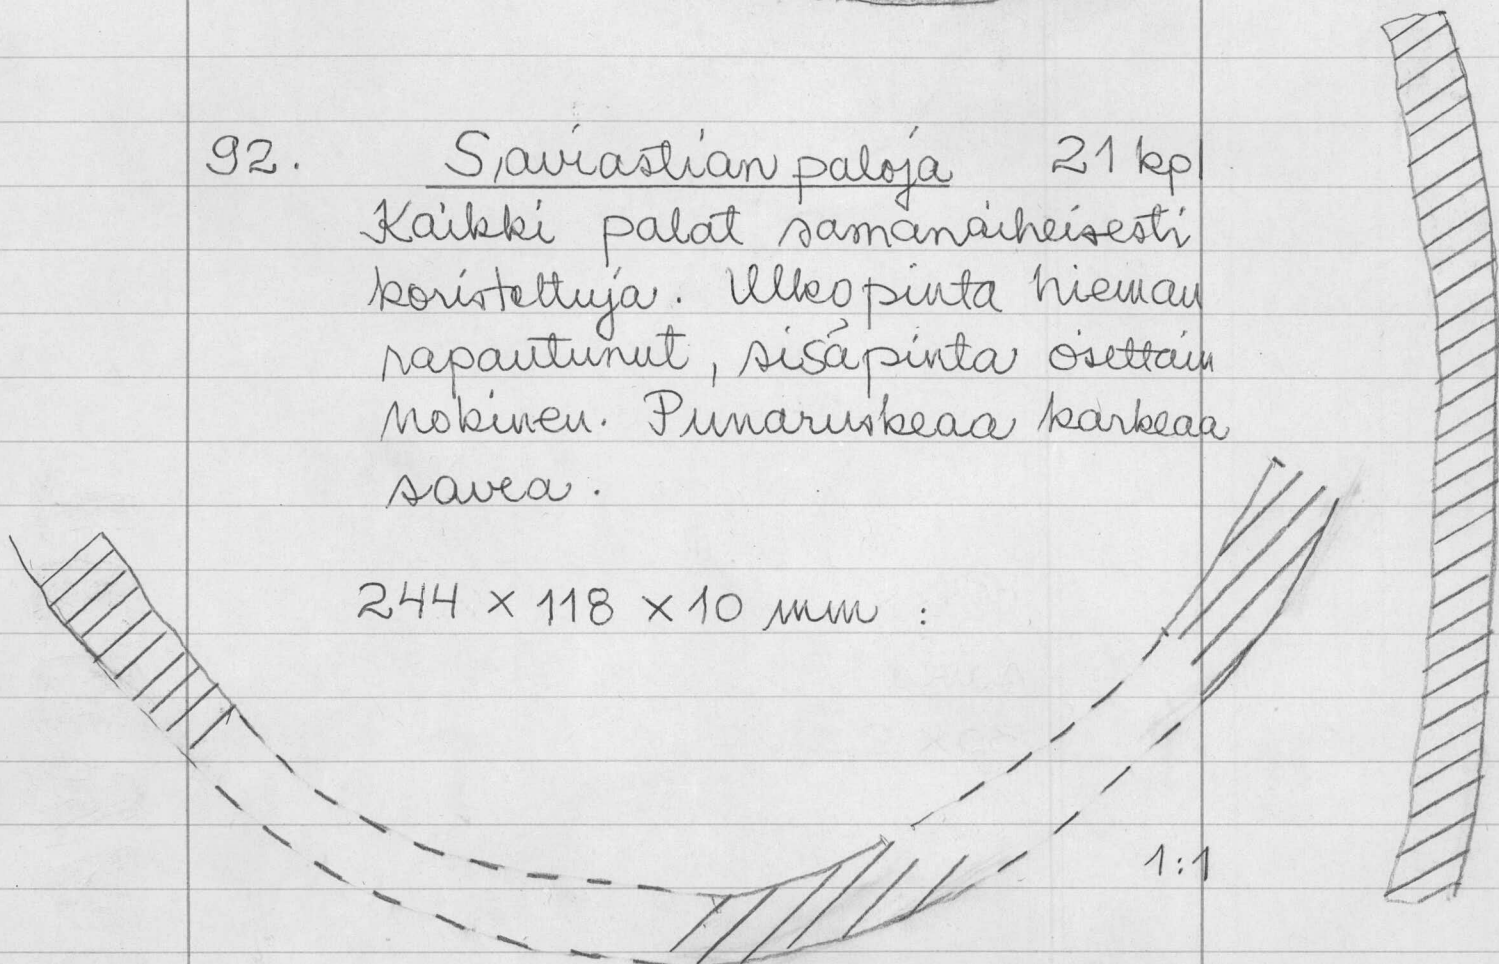 92. Saviastian paloja 21 kpl
Kaikki palat samanaiheisesti
koristeltuja. Ulkopinta hieman
rapautunut, sisäpinta osittain
nokinen. Punaruskeaa karkeaa
savea.
244 x 118 x 10 mm :
1:1